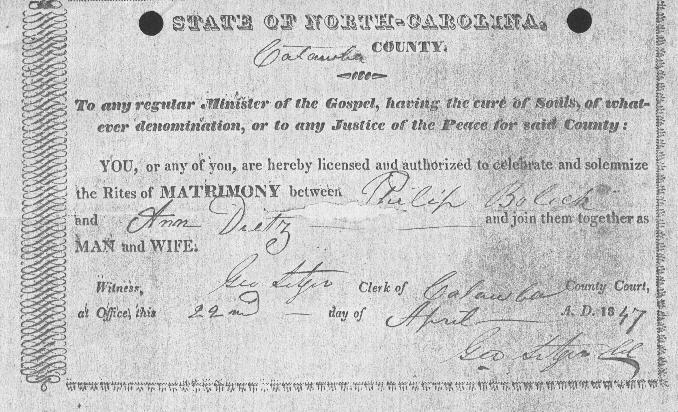 STATE OF NORTH-CAROLINA,
Catawba COUNTY.
To any regular Minister of the Gospel, having the cure of Souls, of what-
ever denomination, or to any Justice of the Peace for said County:
YOU, or any of you, are hereby licensed and authorized to celebrate and solemnize
the Rites of MATRIMONY between Philip Bolick
and Ann Dietz and join them together as
MAN and WIFE.
Witness, Geo Setzer Clerk of Catawba County Court,
at Office, this 22nd day of April A. D. 1847
Geo Setzer